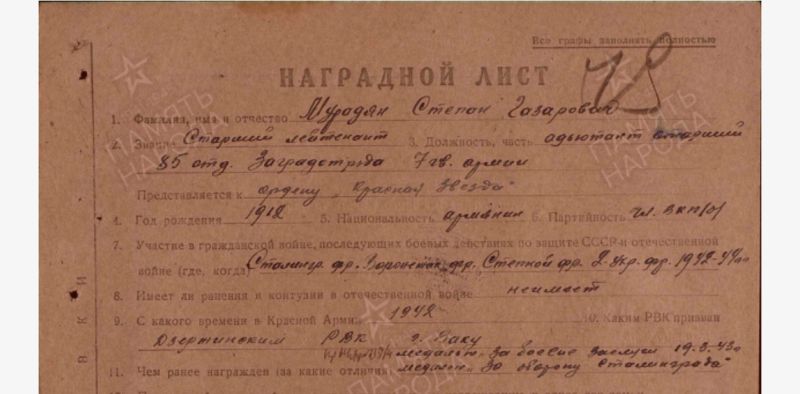 Все графы заполнять полностью
НАГРАДНОЙ ЛИСТ
1. Фамилия, имя и отчество Мурадян Степан Газарович
2. Звание Старший лейтенант 3. Должность, часть адъютант старший
85 отд. Заградотряда 7 гв. армии
Представляется к ордену „Красная Звезда"
4. Год рождения 1912 5. Национальность армянин 6. Партийность чл. ВКП/б/
7. Участие в гражданской войне, последующих боевых действиях по защите СССР и отечественной
войне (где, когда) Сталингр. фр. Воронежск. фр. Степной фр. 2 Укр. фр. 1942-44
8. Имеет ли ранения и контузии в отечественной войне неимеет
9. С какого времени в Красной Армии 1942 10. Каким РВК призван
Дзержинским РВК г. Баку
медалью „За боевые заслуги 19.3.43
11. Чем ранее награжден (за какие отличия) медалью „За оборону Сталинграда"
ПАМЯТЬ НАРОДА